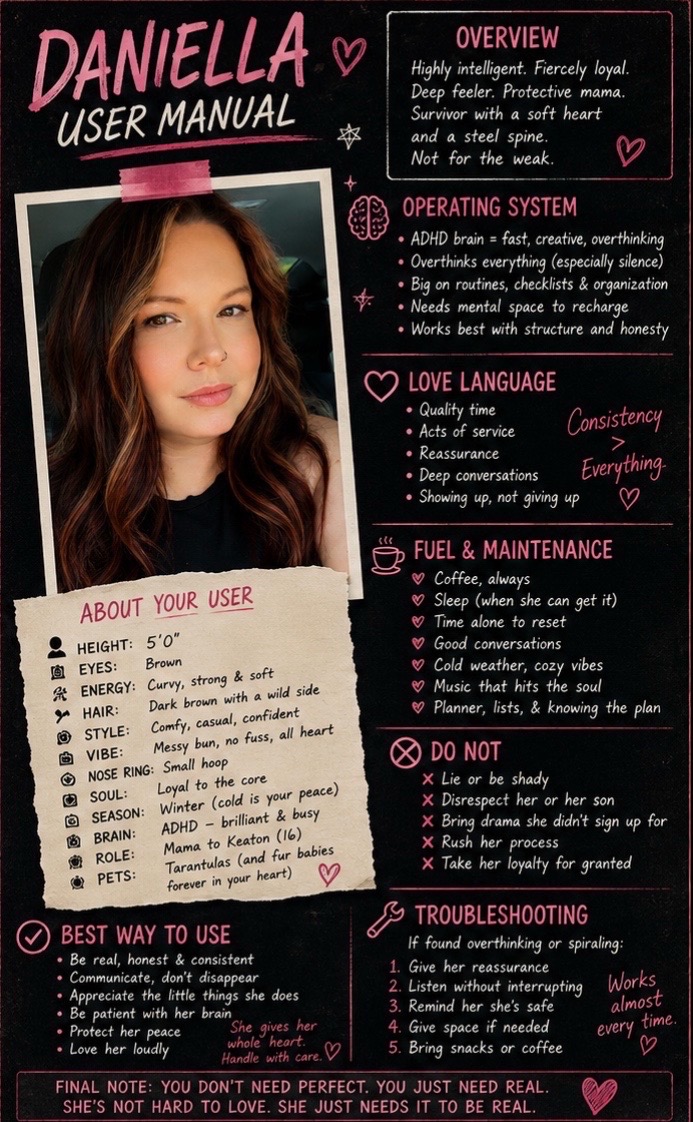 DANIELLA
USER MANUAL
OVERVIEW
Highly intelligent. Fiercely loyal.
Deep feeler. Protective mama.
Survivor with a soft heart
and a steel spine.
Not for the weak.
OPERATING SYSTEM
• ADHD brain = fast, creative, overthinking
• Overthinks everything (especially silence)
• Big on routines, checklists & organization
• Needs mental space to recharge
• Works best with structure and honesty
LOVE LANGUAGE
• Quality time
• Acts of service
• Reassurance
• Deep conversations
• Showing up, not giving up
Consistency
>
Everything.
FUEL & MAINTENANCE
Coffee, always
Sleep (when she can get it)
Time alone to reset
Good conversations
Cold weather, cozy vibes
Music that hits the soul
Planner, lists, & knowing the plan
DO NOT
X Lie or be shady
X Disrespect her or her son
X Bring drama she didn't sign up for
X Rush her process
X Take her loyalty for granted
TROUBLESHOOTING
If found overthinking or spiraling:
1. Give her reassurance
2. Listen without interrupting
3. Remind her she's safe
4. Give space if needed
5. Bring snacks or coffee
Works
almost
every time.
ABOUT YOUR USER
HEIGHT: 5'0"
EYES: Brown
ENERGY: Curvy, strong & soft
HAIR: Dark brown with a wild side
STYLE: Comfy, casual, confident
VIBE: Messy bun, no fuss, all heart
NOSE RING: Small hoop
SOUL: Loyal to the core
SEASON: Winter (cold is your peace)
BRAIN: ADHD – brilliant & busy
ROLE: Mama to Keaton (16)
PETS: Tarantulas (and fur babies
forever in your heart)
BEST WAY TO USE
• Be real, honest & consistent
• Communicate, don't disappear
• Appreciate the little things she does
• Be patient with her brain
• Protect her peace
• Love her loudly
She gives her
whole heart.
Handle with care.
FINAL NOTE: YOU DON'T NEED PERFECT. YOU JUST NEED REAL.
SHE'S NOT HARD TO LOVE. SHE JUST NEEDS IT TO BE REAL.